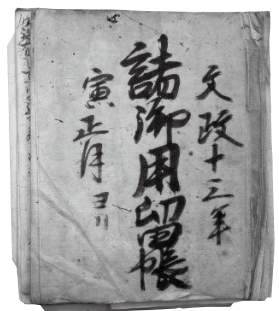 文政十三年
諸御用留帳
寅正月ヨリ